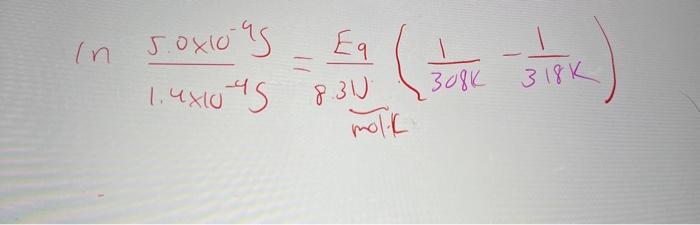 ln 5.0x10^-4 S / 1.4x10^-4 S = Ea / 8.31J/mol·K ( 1/308K - 1/318K )